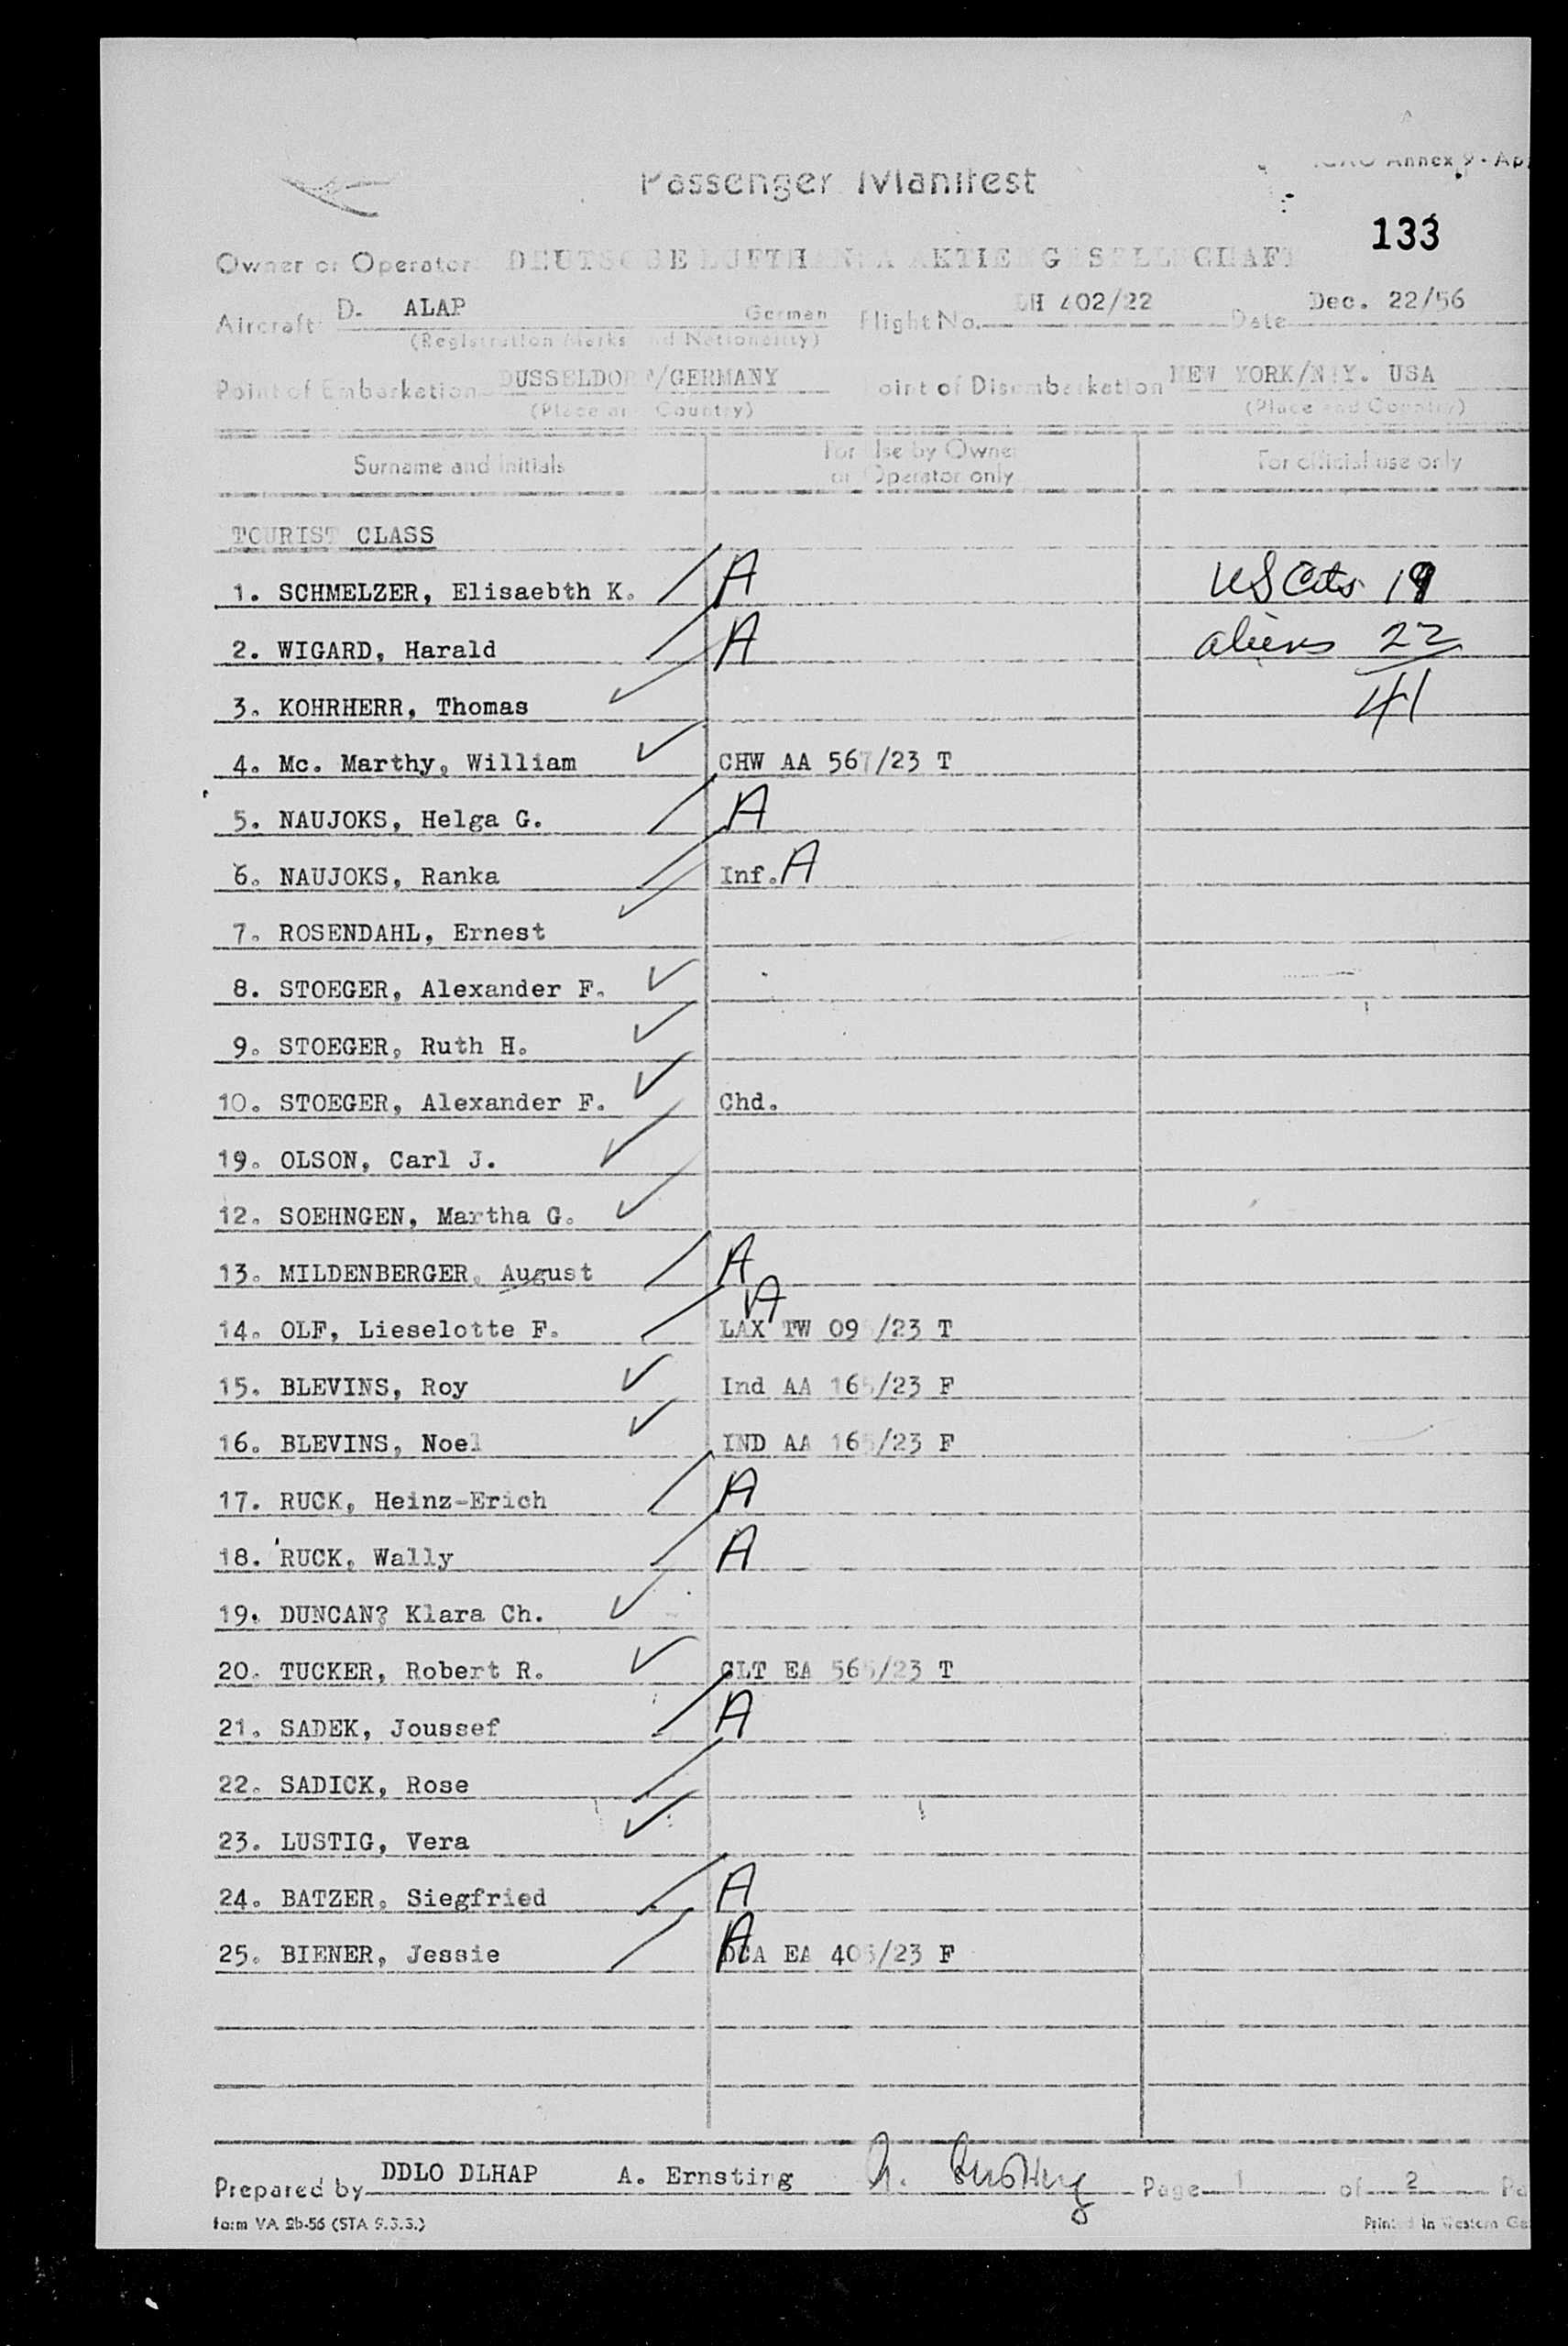 ICAO Annex 9 - Ap
Passenger Manifest
133
Owner or Operator DEUTSCHE LUFTHANSA AKTIENGESELLSCHAFT
Aircraft D. ALAP German Flight No. LH 402/22 Date Dec. 22/56
(Registration Marks and Nationality)
Point of Embarkation DUSSELDORF/GERMANY Point of Disembarkation NEW YORK/N.Y. USA
(Place and Country) (Place and Country)
Surname and Initials For Use by Owner or Operator only For official use only
TOURIST CLASS
1. SCHMELZER, Elisaebth K. A US Cits 19
2. WIGARD, Harald A aliens 22
3. KOHRHERR, Thomas 41
4. Mc. Marthy, William CHW AA 567/23 T
5. NAUJOKS, Helga G. A
6. NAUJOKS, Ranka Inf. A
7. ROSENDAHL, Ernest
8. STOEGER, Alexander F.
9. STOEGER, Ruth H.
10. STOEGER, Alexander F. Chd.
19. OLSON, Carl J.
12. SOEHNGEN, Martha G.
13. MILDENBERGER, August A
14. OLF, Lieselotte F. A LAX TW 09 /23 T
15. BLEVINS, Roy Ind AA 165/23 F
16. BLEVINS, Noel IND AA 165/23 F
17. RUCK, Heinz-Erich A
18. RUCK, Wally A
19. DUNCAN? Klara Ch.
20. TUCKER, Robert R. CLT EA 565/23 T
21. SADEK, Joussef A
22. SADICK, Rose
23. LUSTIG, Vera
24. BATZER, Siegfried A
25. BIENER, Jessie A DCA EA 405/23 F
Prepared by DDLO DLHAP A. Ernsting A. Ernsting Page 1 of 2 Pa
form VA 2b-56 (STA 9.3.3.) Printed in Western Ge